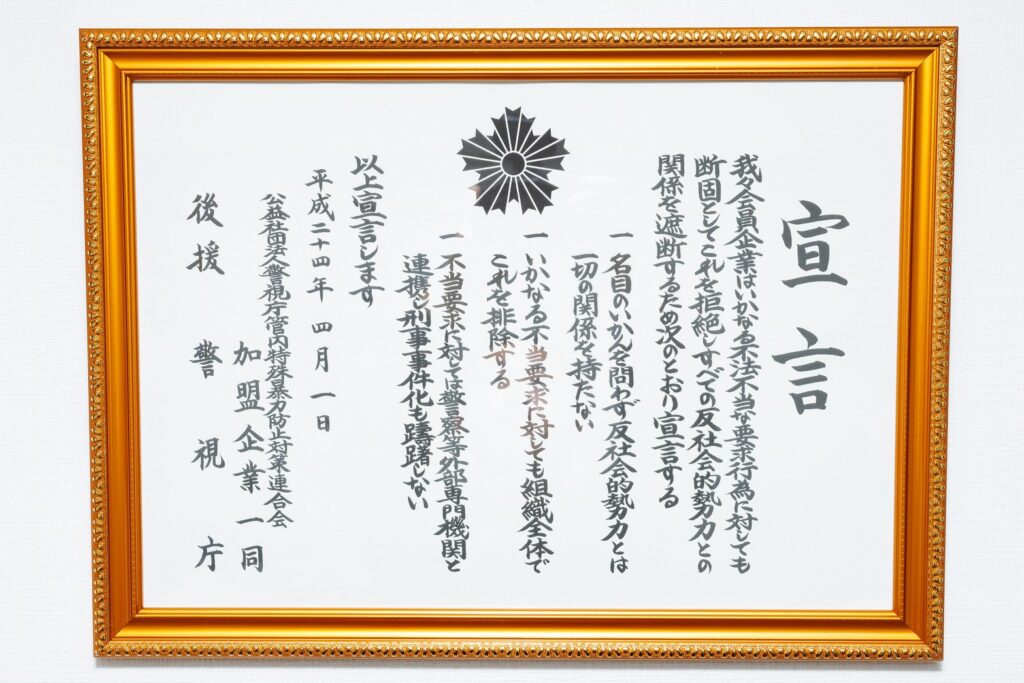 宣言
我々会員企業はいかなる不法不当な要求行為に対しても
断固としてこれを拒絶しすべての反社会的勢力との
関係を遮断するため次のとおり宣言する
一 名目のいかんを問わず反社会的勢力とは
一切の関係を持たない
一 いかなる不当要求に対しても組織全体で
これを排除する
一 不当要求に対しては警察等外部専門機関と
連携し刑事事件化も躊躇しない
以上宣言します
平成二十四年 四月一日
公益社団法人警視庁管内特殊暴力防止対策連合会
加盟企業一同
後援 警視庁